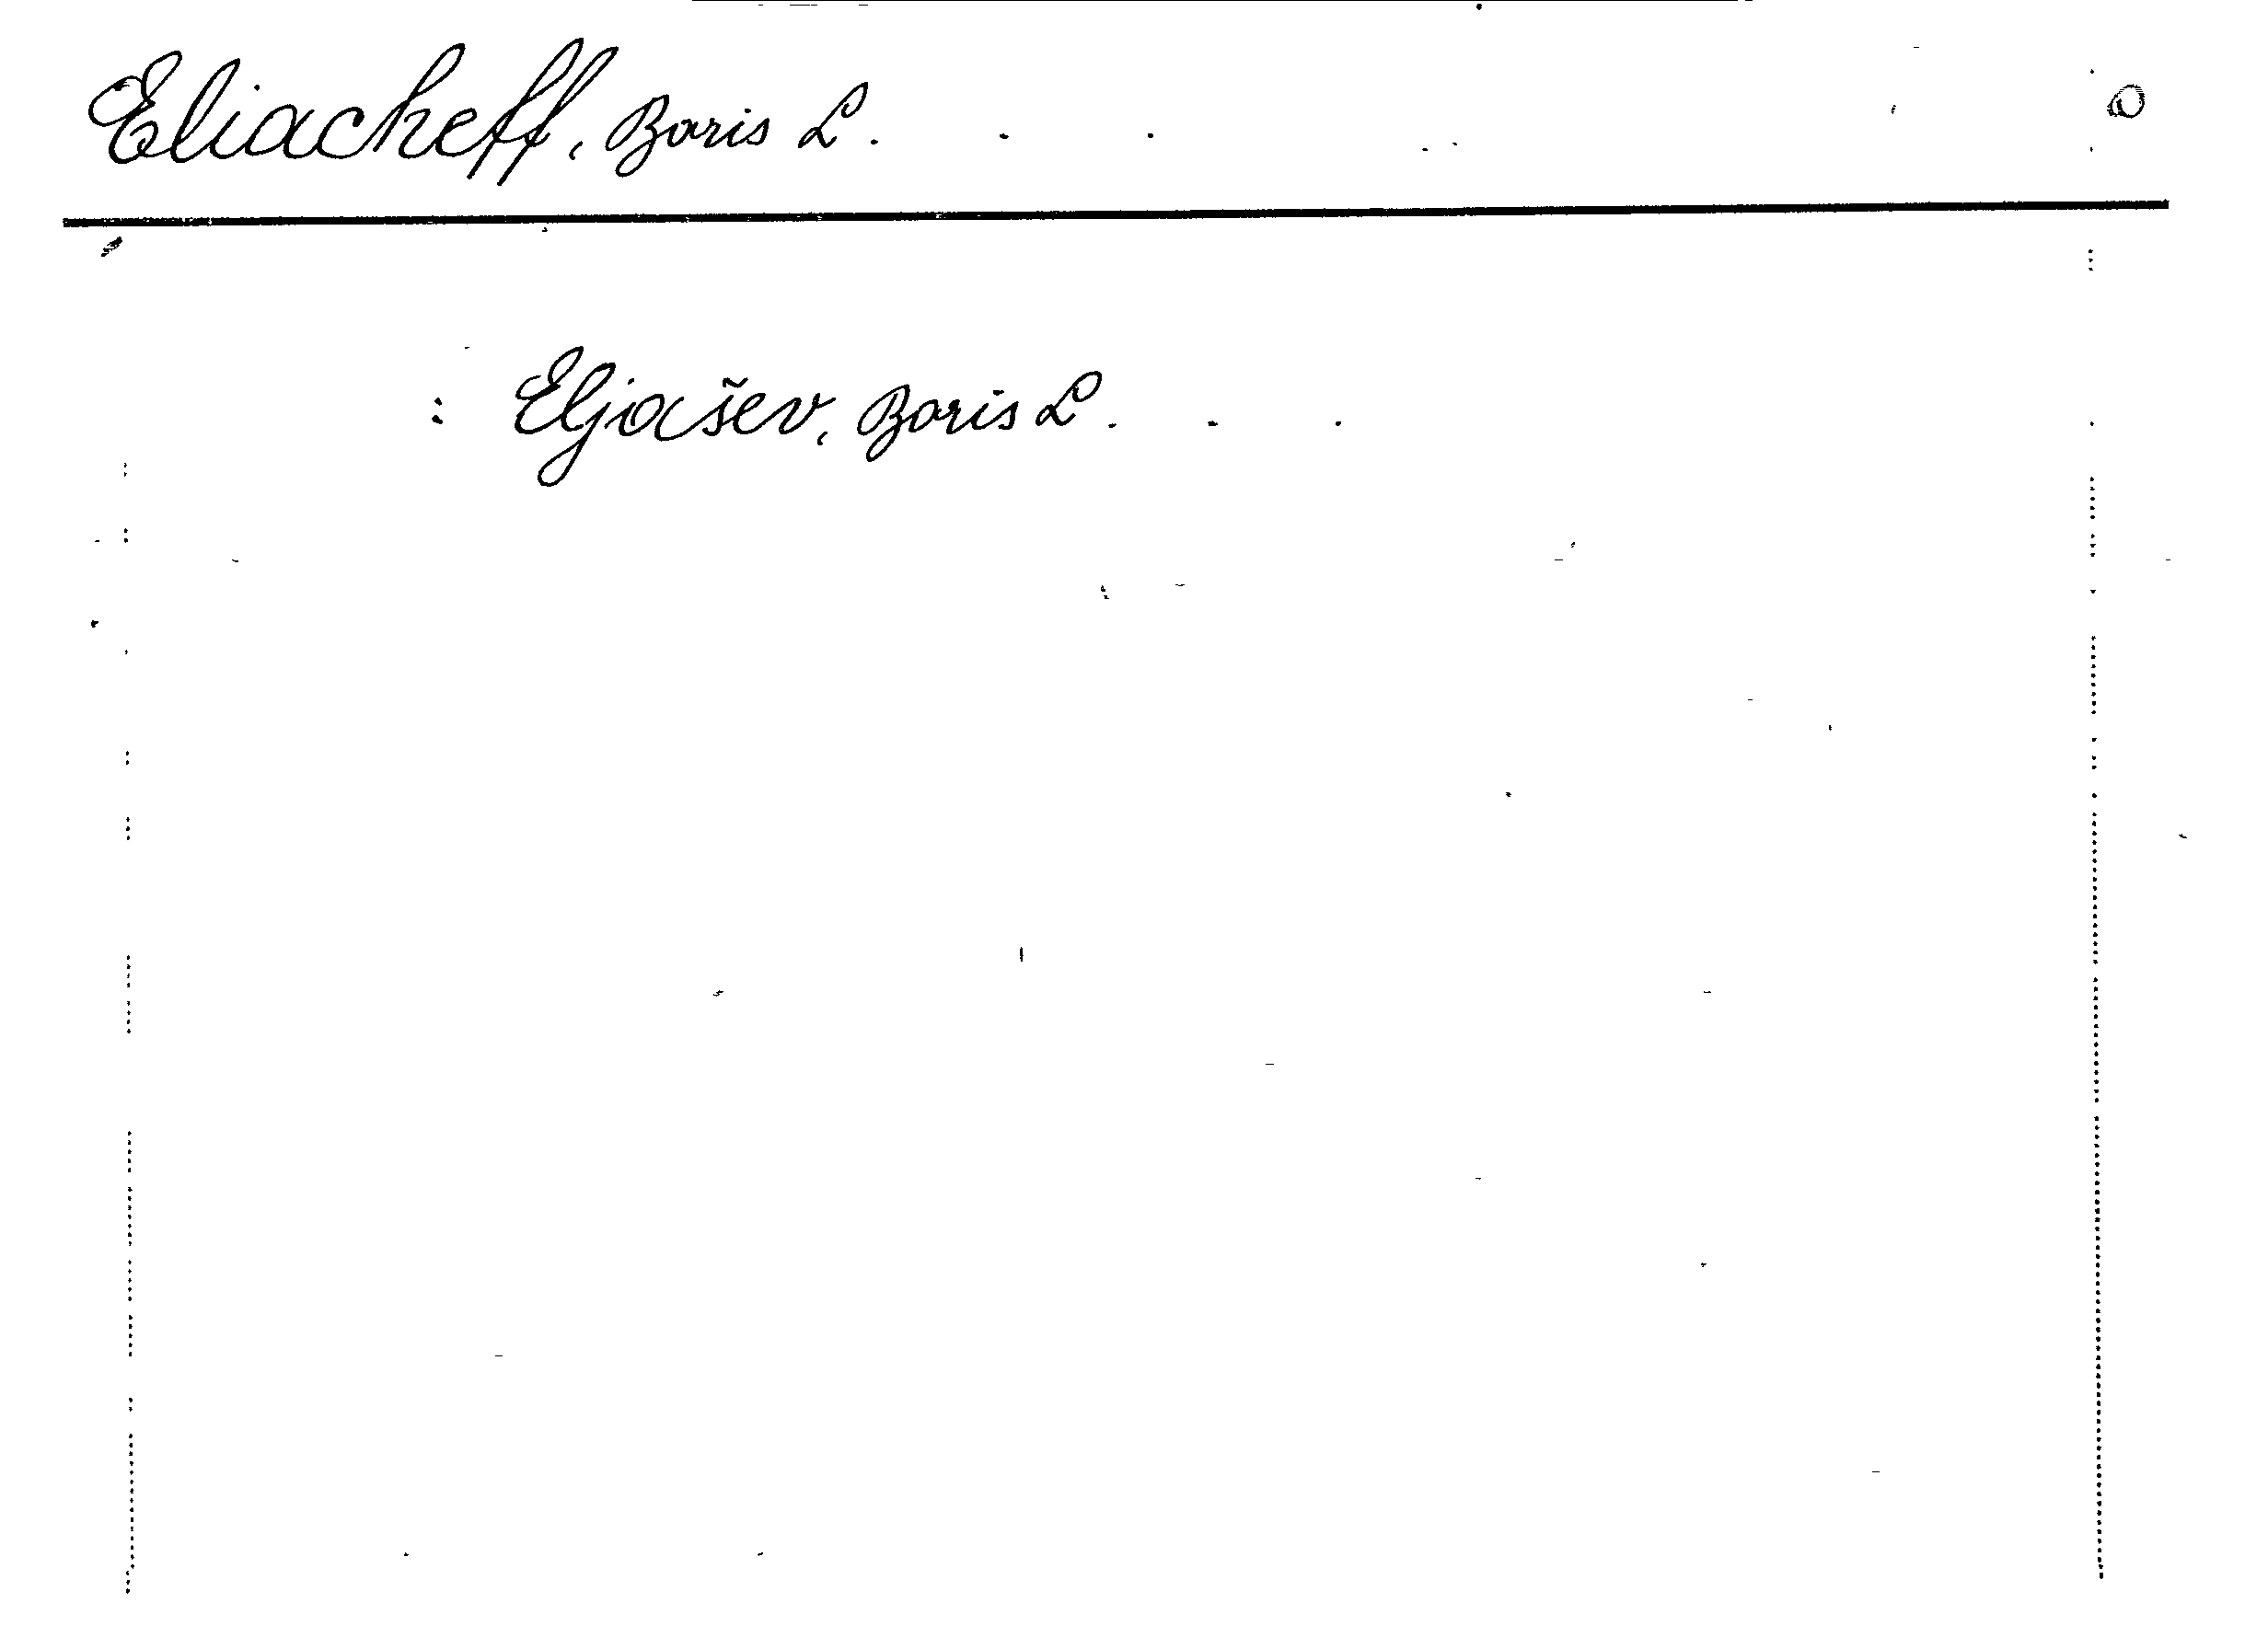 Eliacheff, Boris L.
: Eljašev, Boris L.